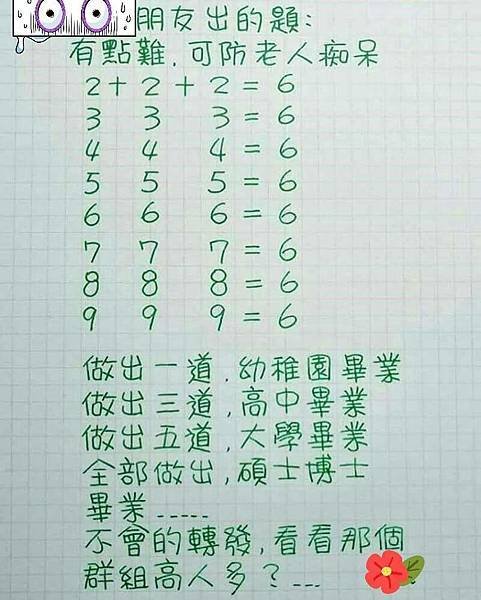 朋友出的題:
有點難,可防老人痴呆
2+2+2=6
3 3 3=6
4 4 4=6
5 5 5=6
6 6 6=6
7 7 7=6
8 8 8=6
9 9 9=6
做出一道,幼稚園畢業
做出三道,高中畢業
做出五道,大學畢業
全部做出,碩士博士
畢業-----
不會的轉發,看看那個
群組高人多?---